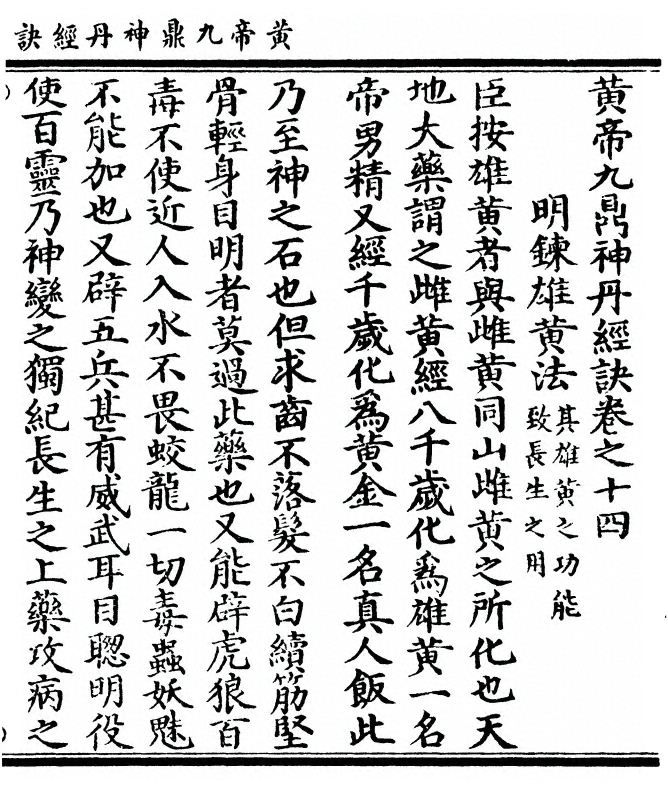 黄帝九鼎神丹經訣
黄帝九鼎神丹經訣卷之十四
明鍊雄黄法 其雄黄之功能
致長生之用
臣按雄黄者與雌黄同山雌黄之所化也天
地大藥謂之雌黄經八千歲化爲雄黄一名
帝男精又經千歲化爲黄金一名真人飯此
乃至神之石也但求齒不落髮不白續筋堅
骨輕身目明者莫過此藥也又能辟虎狼百
毒不使近人入水不畏蛟龍一切毒蟲妖魅
不能加也又辟五兵甚有威武耳目聰明役
使百靈乃神變之獨紀長生之上藥攻病之